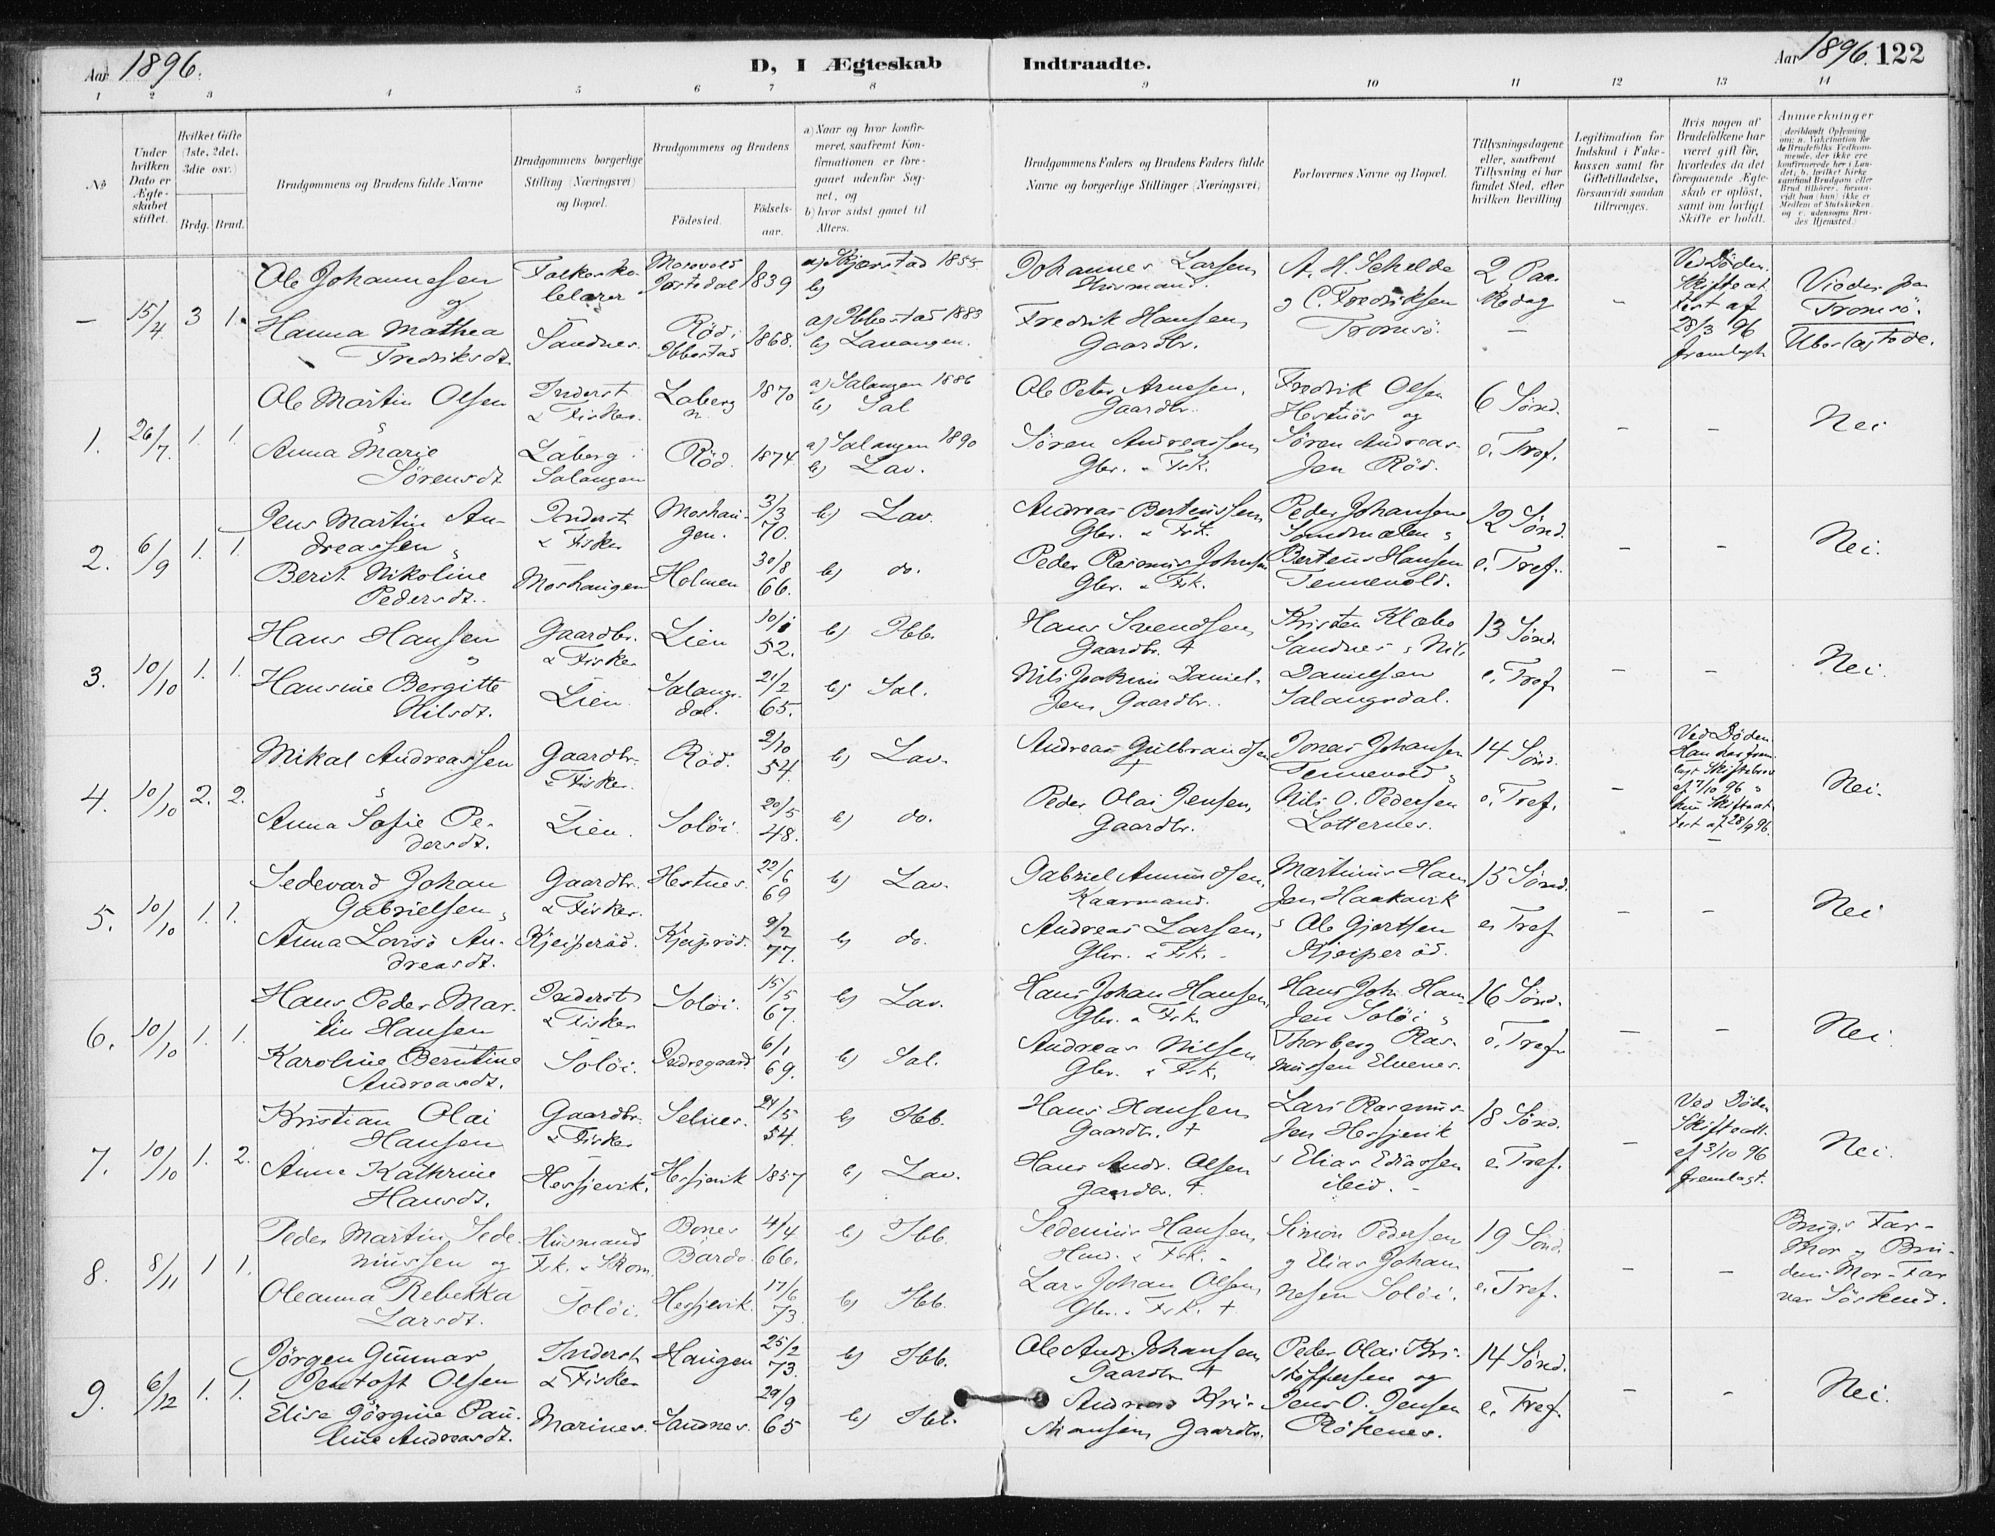 Aar 1896.
D, I Ægteskab
Indtraadte.
Aar 1896. 122
1 2 3 4 5 6 7 8 9 10 11 12 13 14
No
Under hvilken Dato er Ægteskabet stiftet.
Hvilket Gifte (1ste, 2det, 3die osv.)
Brdg. Brud.
Brudgommens og Brudens fulde Navne
Brudgommens borgerlige Stilling (Næringsvei) og Bopæl.
Brudgommens og Brudens
Födested.
Födsels-aar.
a) Naar og hvor konfirmeret, saafremt Konfirmationen er foregaaet udenfor Sognet, og
b) hvor sidst gaaet til Alters.
Brudgommens Faders og Brudens Faders fulde Navne og borgerlige Stillinger (Næringsvei)
Forlovernes Navne og Bopæl.
Tillysningsdagene eller, saafremt Tillysning ei har fundet Sted, efter hvilken Bevilling
Legitimation for Indskud i Enkekassen samt for Giftetilladelse, forsaavidt saadan tiltrænges.
Hvis nogen af Brudefolkene har været gift før, hvorledes da det foregaaende Ægteskab er opløst, samt om lovligt Skifte er holdt.
Anmerkninger
— 15/4 3 1.
Ole Johannesen
og
Hanna Mathea
Fredriksdt.
Sandnes.
1839
Rød i
Ibbestad
1868.
b)
a) Ibbestad 1883
b) Lavangen.
Johannes Larsen,
Fredrik Hansen,
Gaardbr.
A. H. Schelde
og C. Fredriksen
Tromsö.
—
Ved Døden.
Skifteat
test af
28/3 96
fremlagt
Viede paa
Tromsö.
1. 26/7. 1. 1.
Ole Martin Olsen
Anna Marie
Sørensdt
Inderst
& Fisker.
Laberg i
Salangen
Laberg
Röd.
1870
1874.
a) Salangen 1886
b) Sal
a) Salangen 1890
b) Lav.
Ole Peter Arnesen,
Gaardbr.
Søren Andreassen,
Gbr. & Fsk.
Fredrik Olsen
Hestnös og
Søren Andreas-
sen Röd.
6 Sönd.
e. Tref.
– –
Nei
2. 6/9 1. 1.
Jens Martin An-
dreassen
Berit Nikoline
Pedersdt.
Inderst
& Fisker
Moshaugen
Moshau-
gen.
Holmen
3/3
70.
30/8
66.
b) Lav.
b) do.
Andreas Berteussen,
Gbr. & Fsk.
Peder Rasmus Johnsen
Gbr. & Fsk.
Peder Johansen
Berteus Hansen
Tennevold.
12 Sönd.
e. Tref.
– –
Nei.
3. 10/10 1. 1.
Hans Hansen
Hansine Bergitte
Nilsdt.
Gaardbr.
& Fisker
Lien.
Lien
Salangs-
dal.
52.
21/2
65.
b) Ibb.
b) Sal.
Hans Svendsen,
Gaardbr. †
Nils Joakim Daniel-
sen, Gaardbr.
Kristen Klæbo
Sandnes, Nils
Danielsen
Salangsdal.
13 Sönd.
e. Tref
– –
Nei.
4. 10/10 2. 2.
Mikal Andreassen
Anna Sofie Pe-
dersdt.
Gaardbr.
& Fisker.
Lien.
Röd.
Solöi.
2/10
54.
20/5
48.
b) Lav.
b) do.
Andreas Gulbrandsen
†
Peder Olai Jensen,
Gaardbr.
Jonas Johansen
Tennevold
Nils O. Pedersen
Lotternes.
14 Sönd.
e. Tref.
–
Ved Døden
Han har frem-
lagt Skiftebrev
af 7/10 96
hun Skifteat
test af 28/9 96.
Nei.
5. 10/10 1. 1.
Sedevard Johan
Gabrielsen
Anna Lovise An-
dreasdt.
Gaardbr.
& Fisker.
Kjeiperöd.
Hestnes.
Kjeiprød.
22/6
69
9/2
77.
b) Lav.
b) do.
Gabriel Amundsen,
Kaarmand.
Andreas Larsen,
Gbr. & Fsk.
Martinus Han-
sen Haakavik
Ole Gjertsen
Kjeiperöd.
15 Sönd.
e. Tref
– –
Nei
6. 10/10 1. 1.
Hans Peder Mar-
tin Hansen
Karoline Berntine
Andreasdt.
Inderst
& Fisker
Solöi.
Solöi.
15/5
67.
6/1
69.
b) Lav.
b) Sal.
Hans Johan Hansen,
Gbr. & Fsk.
Andreas Nilsen
Gbr. & Fsk.
Hans Joh. Han-
sen Solöi
Thorberg Ras-
mussen Elvenes.
16 Sönd.
e. Tref.
– –
Nei.
7. 10/10 1. 2.
Kristian Olai
Hansen
Anne Kathrine
Hansdt.
Gaardbr.
& Fisker
Hessjevik.
Selnes.
Hessjevik
21/5
54.
1857
b) Ibb.
b) Lav.
Hans Hansen,
Gaardbr. †
Hans Andr. Olsen
Gaardbr. †.
Lars Rasmus-
sen Hessjevik
Elias Eliassen
ibid.
18 Sönd.
e. Tref.
–
Ved Døden
Skifteatt.
af 3/10 96
fremlagt.
Nei.
8. 8/11 1 1.
Peder Martin Sede-
niussen og
Oleanna Rebekka
Larsdt.
Husmand
Fsk. & Skom.
Solöi.
Bones
Bardo.
Hessjevik.
4/4
66.
17/6
73.
b) Ibb.
b) Ibb.
Sedenius Hansen,
Lars Johan Olsen,
Gbr. & Fsk. †
Simon Pedersen
og Elias Johan-
nesen Solöi.
19 Sönd.
e. Tref.
– –
Brgs Far-
Mor og Bru-
dens Mor-Far
var Söskend.
9. 6/12 1. 1.
Jörgen Gunnar
Jentoft Olsen
Elise Jörgine Pau-
line Andreasdt.
Inderst
& Fisker
Marines.
Haugen
Sandnes.
25/2
73.
29/9
65
b) Ibb.
b) Ibb.
Ole Andr. Johansen,
Gaardbr. †
Andreas Kri-
stiansen, Gaardbr.
Peder Olai Kri-
stoffersen og
Jens O. Jensen
Rökenes.
14 Sönd.
e. Tref.
– –
Nei.